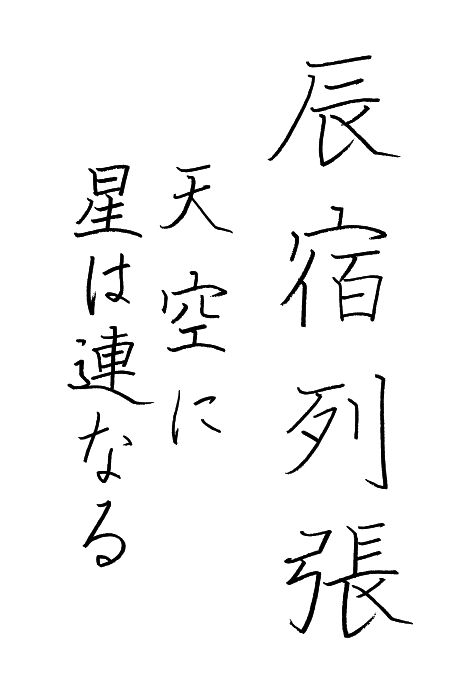 辰宿列張
天空に
星は連なる